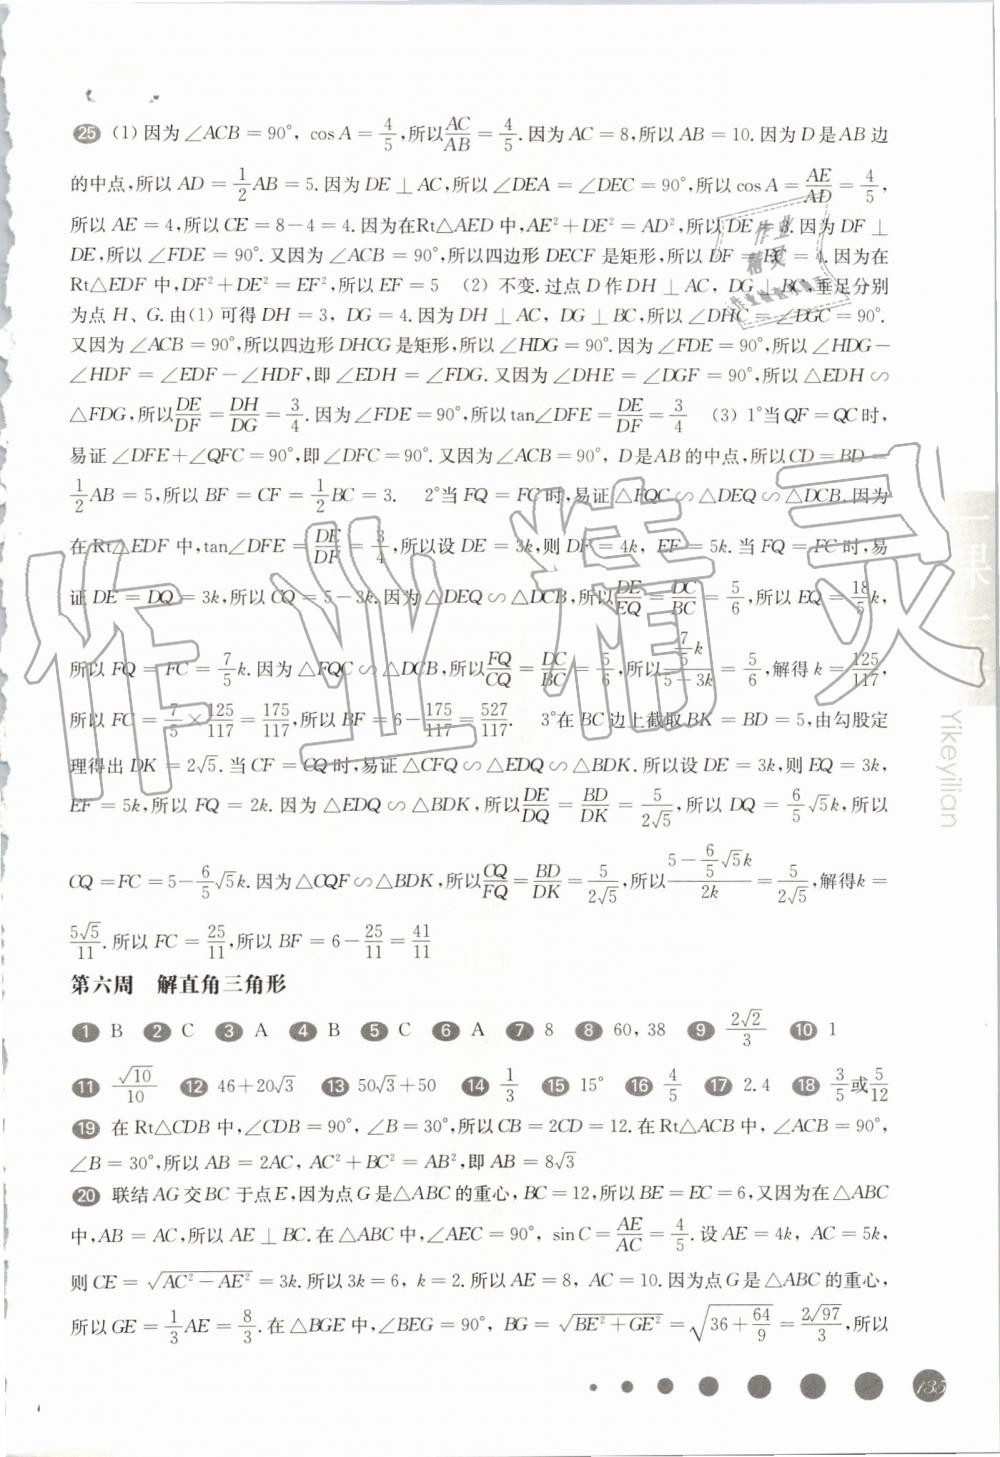 25 (1) 因为∠ACB=90°, cosA=4/5,所以AC/AB=4/5.因为AC=8,所以AB=10.因为D是AB边
的中点,所以AD=1/2AB=5.因为DE⊥AC,所以∠DEA=∠DEC=90°,所以cosA=AE/AD=4/5,
所以AE=4,所以CE=8-4=4.因为在Rt△AED中,AE²+DE²=AD²,所以DE=3.因为DF⊥
DE,所以∠FDE=90°.又因为∠ACB=90°,所以四边形DECF是矩形,所以DF=EC=4.因为在
Rt△EDF中,DF²+DE²=EF²,所以EF=5 (2) 不变.过点D作DH⊥AC, DG⊥BC,垂足分别
为点H、G.由(1)可得DH=3, DG=4.因为DH⊥AC, DG⊥BC,所以∠DHC=∠DGC=90°.
又因为∠ACB=90°,所以四边形DHCG是矩形,所以∠HDG=90°.因为∠FDE=90°,所以∠HDG-
∠HDF=∠EDF-∠HDF,即∠EDH=∠FDG.又因为∠DHE=∠DGF=90°,所以△EDH∽
△FDG,所以DE/DF=DH/DG=3/4.因为∠FDE=90°,所以tan∠DFE=DE/DF=3/4 (3) 1°当QF=QC时,
易证∠DFE+∠QFC=90°,即∠DFC=90°.又因为∠ACB=90°, D是AB的中点,所以CD=BD=
1/2AB=5,所以BF=CF=1/2BC=3. 2°当FQ=FC时,易证△FQC∽△DEQ∽△DCB.因为
在Rt△EDF中,tan∠DFE=DE/DF=3/4,所以设DE=3k,则DF=4k, EF=5k.当FQ=FC时,易
证DE=DQ=3k,所以CQ=5-3k.因为△DEQ∽△DCB,所以DE/EQ=DC/BC=5/6,所以EQ=18/5k,
所以FQ=FC=7/5k.因为△FQC∽△DCB,所以FQ/CQ=DC/BC=5/6,所以(7/5k)/(5-3k)=5/6,解得k=125/117,
所以FC=7/5×125/117=175/117,所以BF=6-175/117=527/117. 3°在BC边上截取BK=BD=5,由勾股定
理得出DK=2√5.当CF=CQ时,易证△CFQ∽△EDQ∽△BDK.所以设DE=3k,则EQ=3k,
EF=5k,所以FQ=2k.因为△EDQ∽△BDK,所以DE/DQ=BD/DK=5/(2√5),所以DQ=6/5√5k,所以
CQ=FC=5-6/5√5k.因为△CQF∽△BDK,所以CQ/FQ=BD/DK=5/(2√5),所以(5-6/5√5k)/(2k)=5/(2√5),解得k=
5√5/11.所以FC=25/11,所以BF=6-25/11=41/11
第六周 解直角三角形
1 B 2 C 3 A 4 B 5 C 6 A 7 8 8 60, 38 9 2√2/3 10 1
11 √10/10 12 46+20√3 13 50√3+50 14 1/3 15 15° 16 4/5 17 2.4 18 3/5或5/12
19 在Rt△CDB中,∠CDB=90°, ∠B=30°,所以CB=2CD=12.在Rt△ACB中, ∠ACB=90°,
∠B=30°,所以AB=2AC, AC²+BC²=AB²,即AB=8√3
20 联结AG交BC于点E,因为点G是△ABC的重心,BC=12,所以BE=EC=6,又因为在△ABC
中,AB=AC,所以AE⊥BC.在△ABC中,∠AEC=90°, sinC=AE/AC=4/5.设AE=4k, AC=5k,
则CE=√(AC²-AE²)=3k.所以3k=6, k=2.所以AE=8, AC=10.因为点G是△ABC的重心,
所以GE=1/3AE=8/3.在△BGE中,∠BEG=90°, BG=√(BE²+GE²)=√(36+64/9)=2√97/3,所以
135
一课一
Yikeyilian
作业精灵
作业
精灵